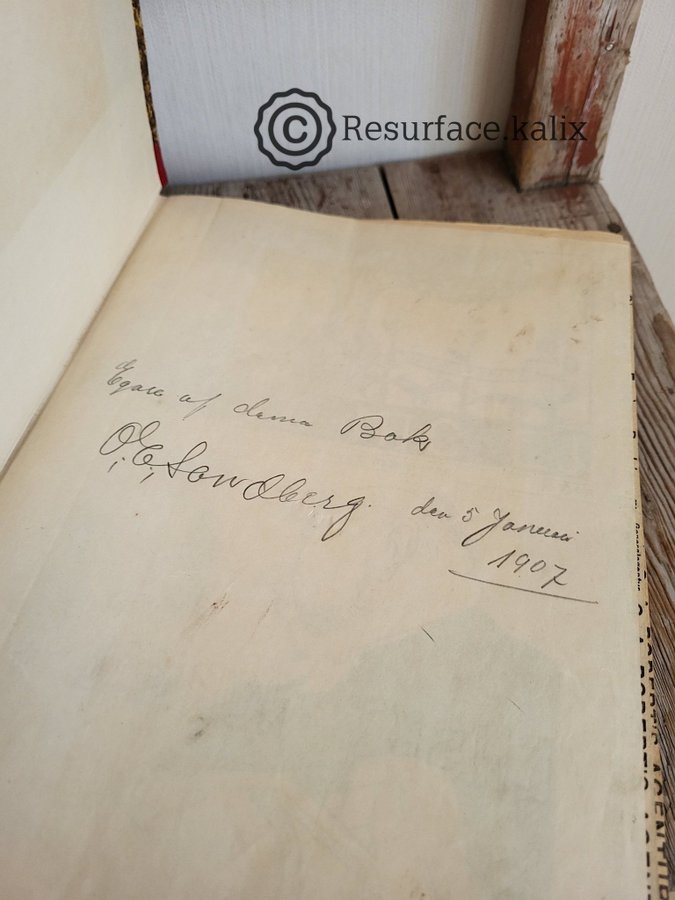 © Resurface.kalix
Egare af denna Bok
O. E. Sandberg. den 5 Januari
1907